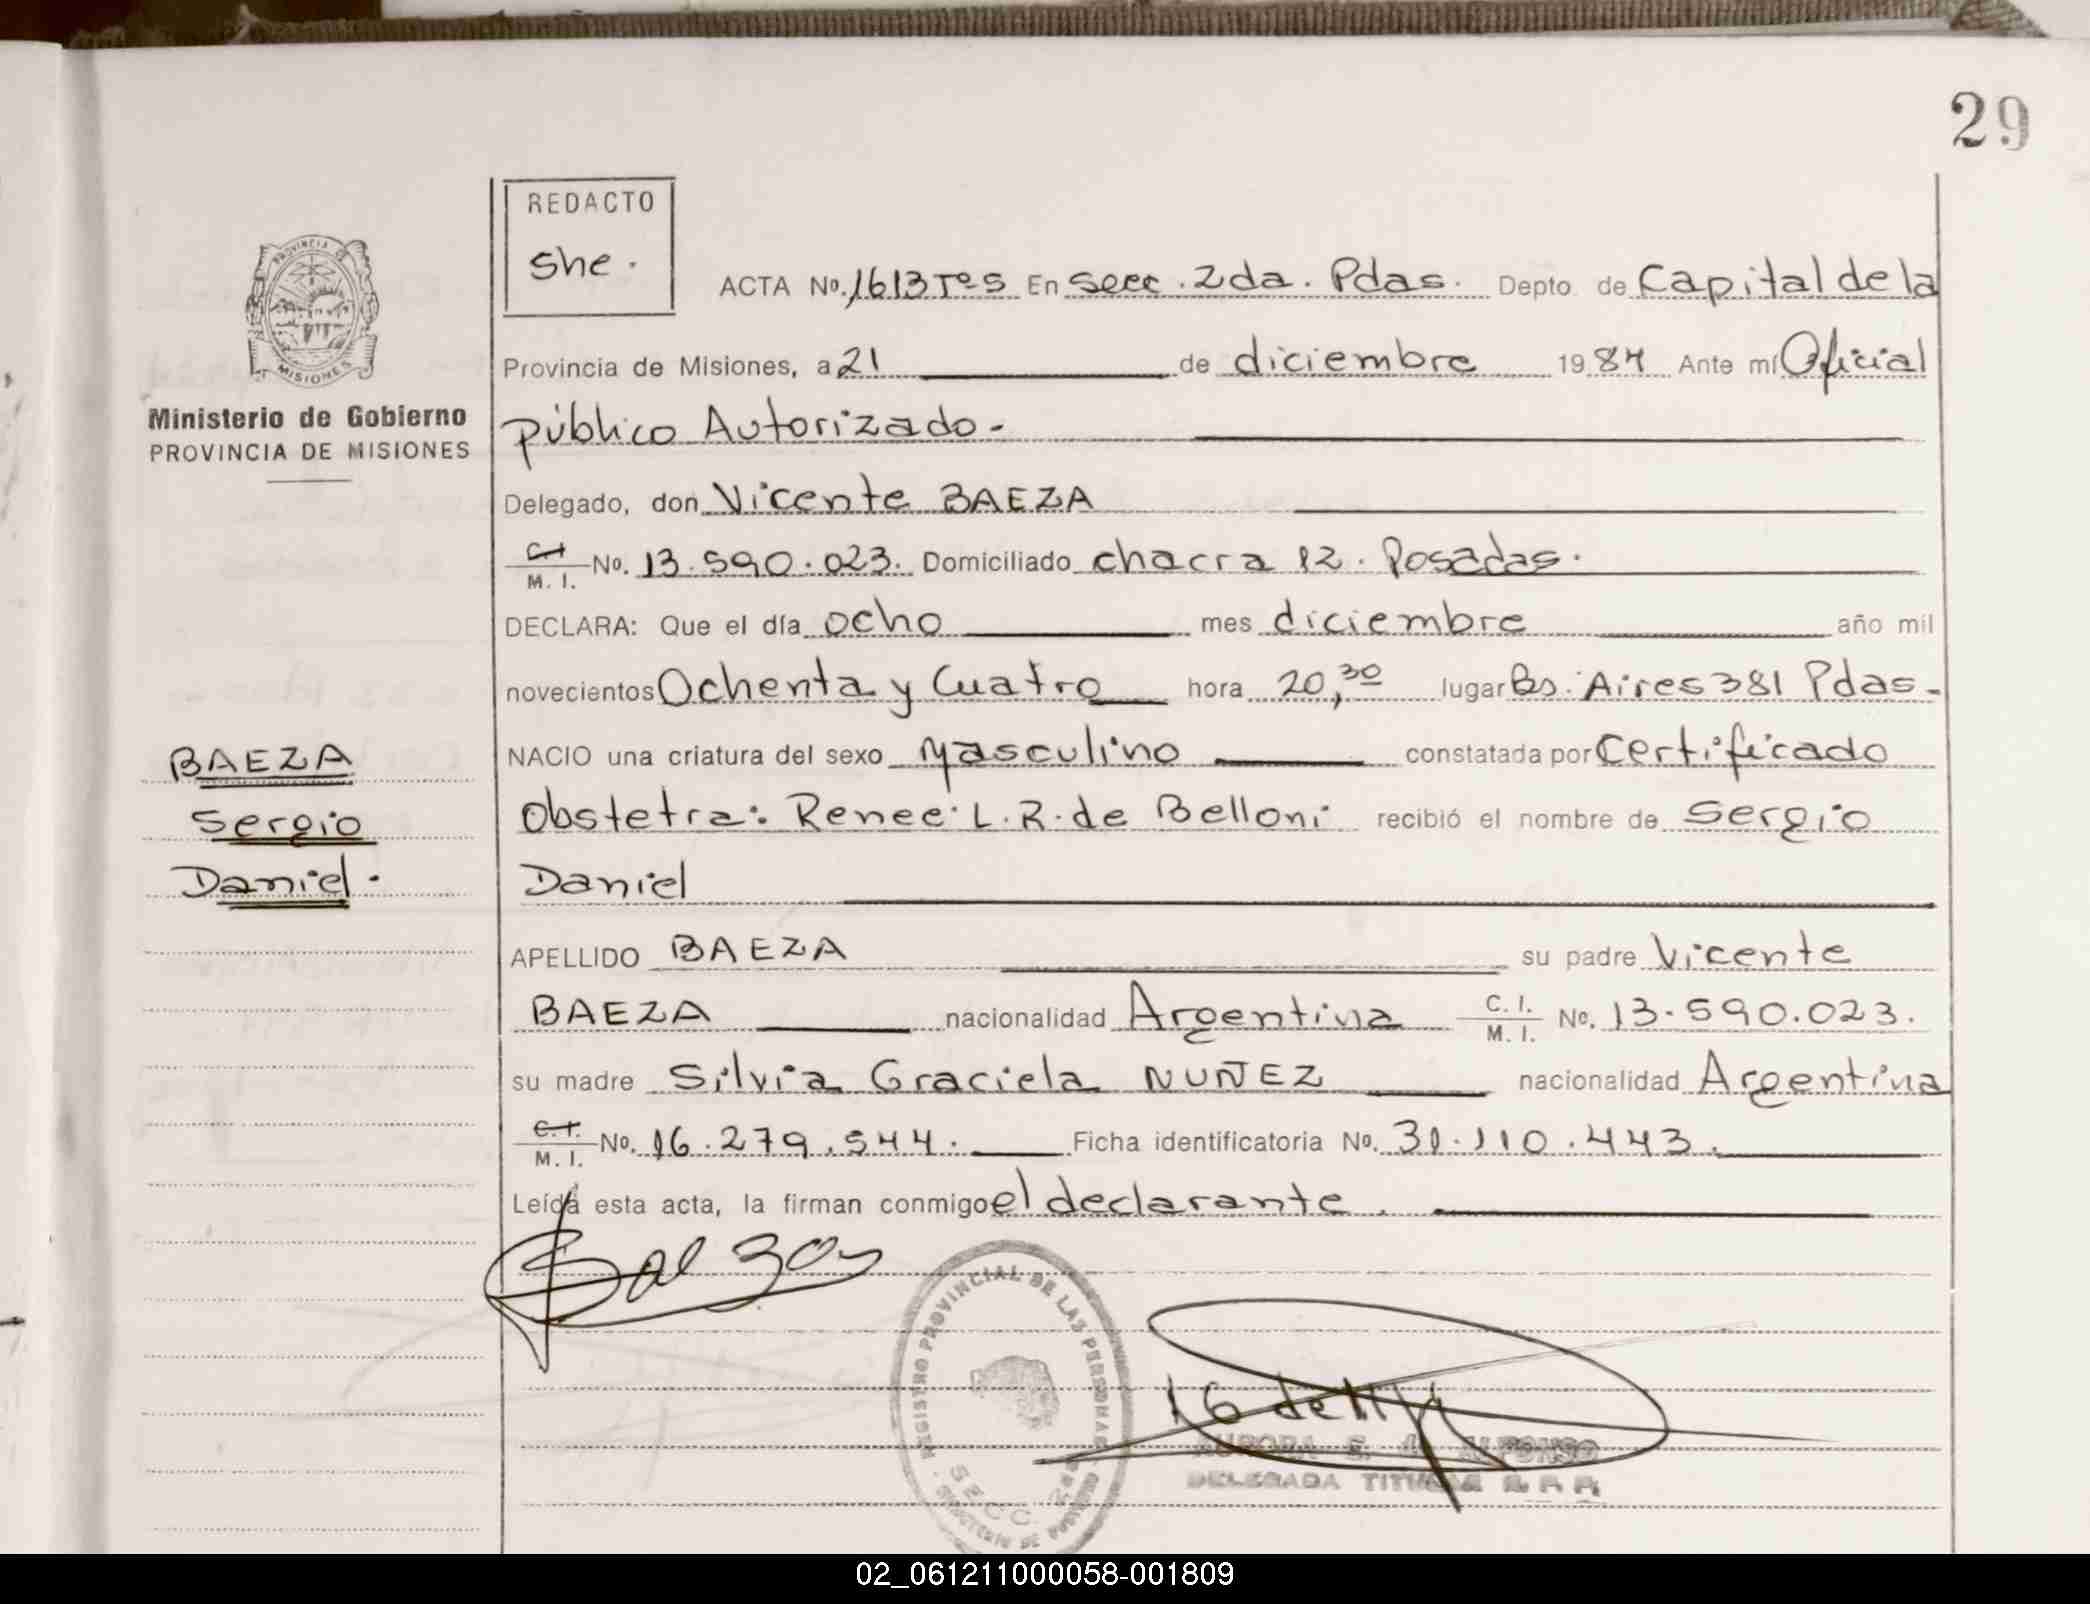 29
REDACTO
She.
PROVINCIA DE
MISIONES
Ministerio de Gobierno
PROVINCIA DE MISIONES
ACTA No. 1613 Tº5 En Secc. 2da. Pdas. Depto. de Capital de la
Provincia de Misiones, a 21 de diciembre 1984 Ante mí Oficial
público Autorizado.
Delegado, don Vicente BAEZA
C.I. M. I. No. 13.590.023. Domiciliado chacra 12. Posadas.
DECLARA: Que el día ocho mes diciembre año mil
novecientos Ochenta y Cuatro hora 20,30 lugar Bs. Aires 381 Pdas.
NACIO una criatura del sexo Masculino constatada por Certificado
Obstetra: Renee L. R. de Belloni recibió el nombre de Sergio
Daniel
BAEZA
Sergio
Daniel.
APELLIDO BAEZA su padre Vicente
BAEZA nacionalidad Argentina C. I. M. I. No. 13.590.023.
su madre Silvia Graciela NUÑEZ nacionalidad Argentina
C.I. M. I. No. 16.279.544. Ficha identificatoria No. 31.110.443.
Leída esta acta, la firman conmigo el declarante.
REGISTRO PROVINCIAL DE LAS PERSONAS
SECC. 2da
AURORA E. ALFONSO
DELEGADA TITULAR R. P. P.
02_061211000058-001809